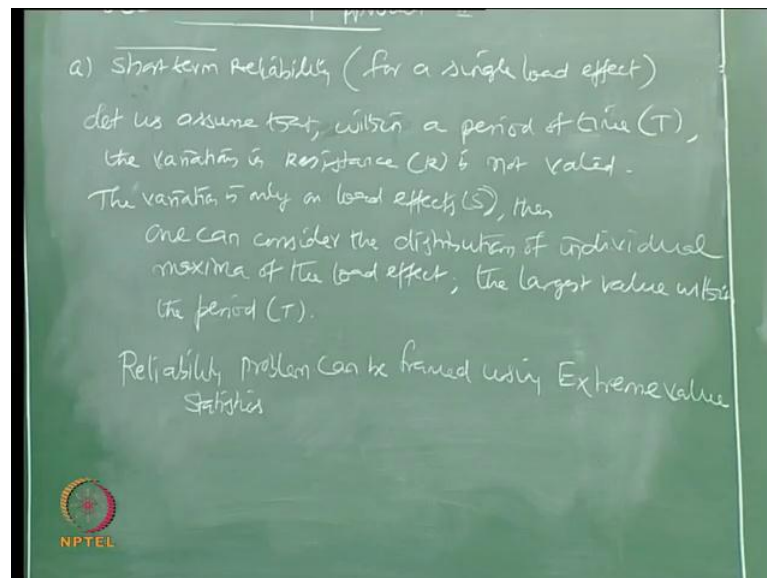 a) Short term Reliability (for a single load effect)
Let us assume that, within a period of time (T),
the variation in Resistance (R) is not valied.
The variation is only on load effects (S), then
one can consider the distribution of individual
maxima of the load effect; the largest value within
the period (T).
Reliability problem can be framed using Extreme value
Statistics
NPTEL